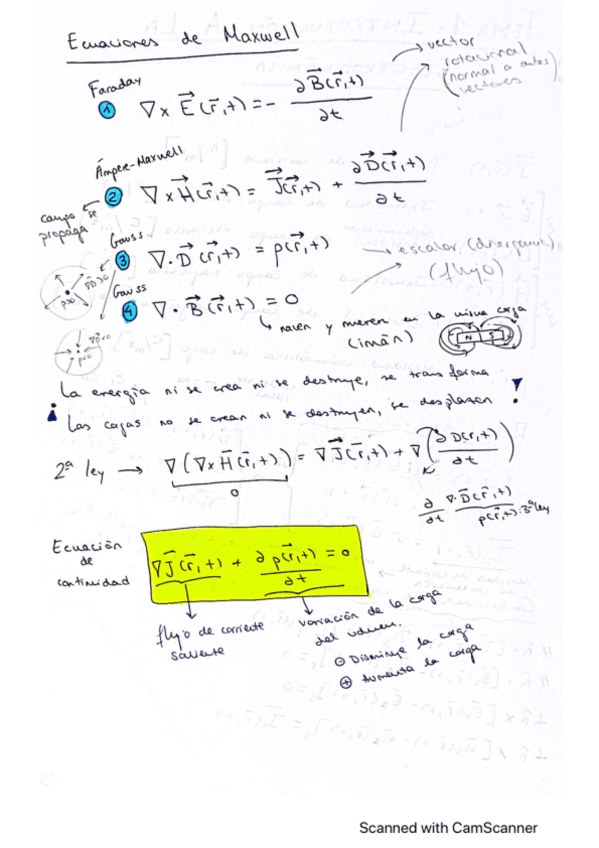 Ecuaciones de Maxwell
Faraday
① ∇ x E⃗(r⃗,t) = - ∂B⃗(r⃗,t) / ∂t
vector
rotacional
(normal a ambos
vectores
Ámpere-Maxwell
② ∇ x H⃗(r⃗,t) = J⃗(r⃗,t) + ∂D⃗(r⃗,t) / ∂t
campo se
propaga
Gauss
③ ∇. D⃗(r⃗,t) = ρ(r⃗,t)
escalar (divergent)
(flujo)
Gauss
④ ∇. B⃗(r⃗,t) = 0
nacen y mueren en la misma carga
(imán)
N S
La energía ni se crea ni se destruye, se transforma
¡ Las cargas no se crean ni se destruyen, se desplazan !
2ª ley → ∇(∇x H⃗(r⃗,t)) = ∇J⃗(r⃗,t) + ∇(∂D(r,t) / ∂t)
0
∂/∂t ∇.D⃗(r⃗,t)
ρ(r⃗,t) 3ª ley
Ecuación
de
continuidad
∇J⃗(r⃗,t) + ∂ρ(r⃗,t) / ∂t = 0
flujo de corriente
saliente
variación de la carga
del volumen.
⊖ Disminuye la carga
⊕ Aumenta la carga
Scanned with CamScanner